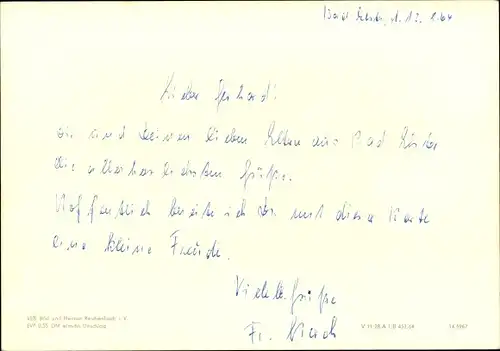 Bad Elster, d. 12. 8. 64
Lieber Gerhard!
Dir und Deinen lieben Eltern aus Bad Elster
die allerherzlichsten Grüße.
Hoffentlich bereite ich Dir mit dieser Karte
eine kleine Freude.
Viele Grüße
Fr.
VEB Bild und Heimat Reichenbach i. V.
V 11 28 A 1/B